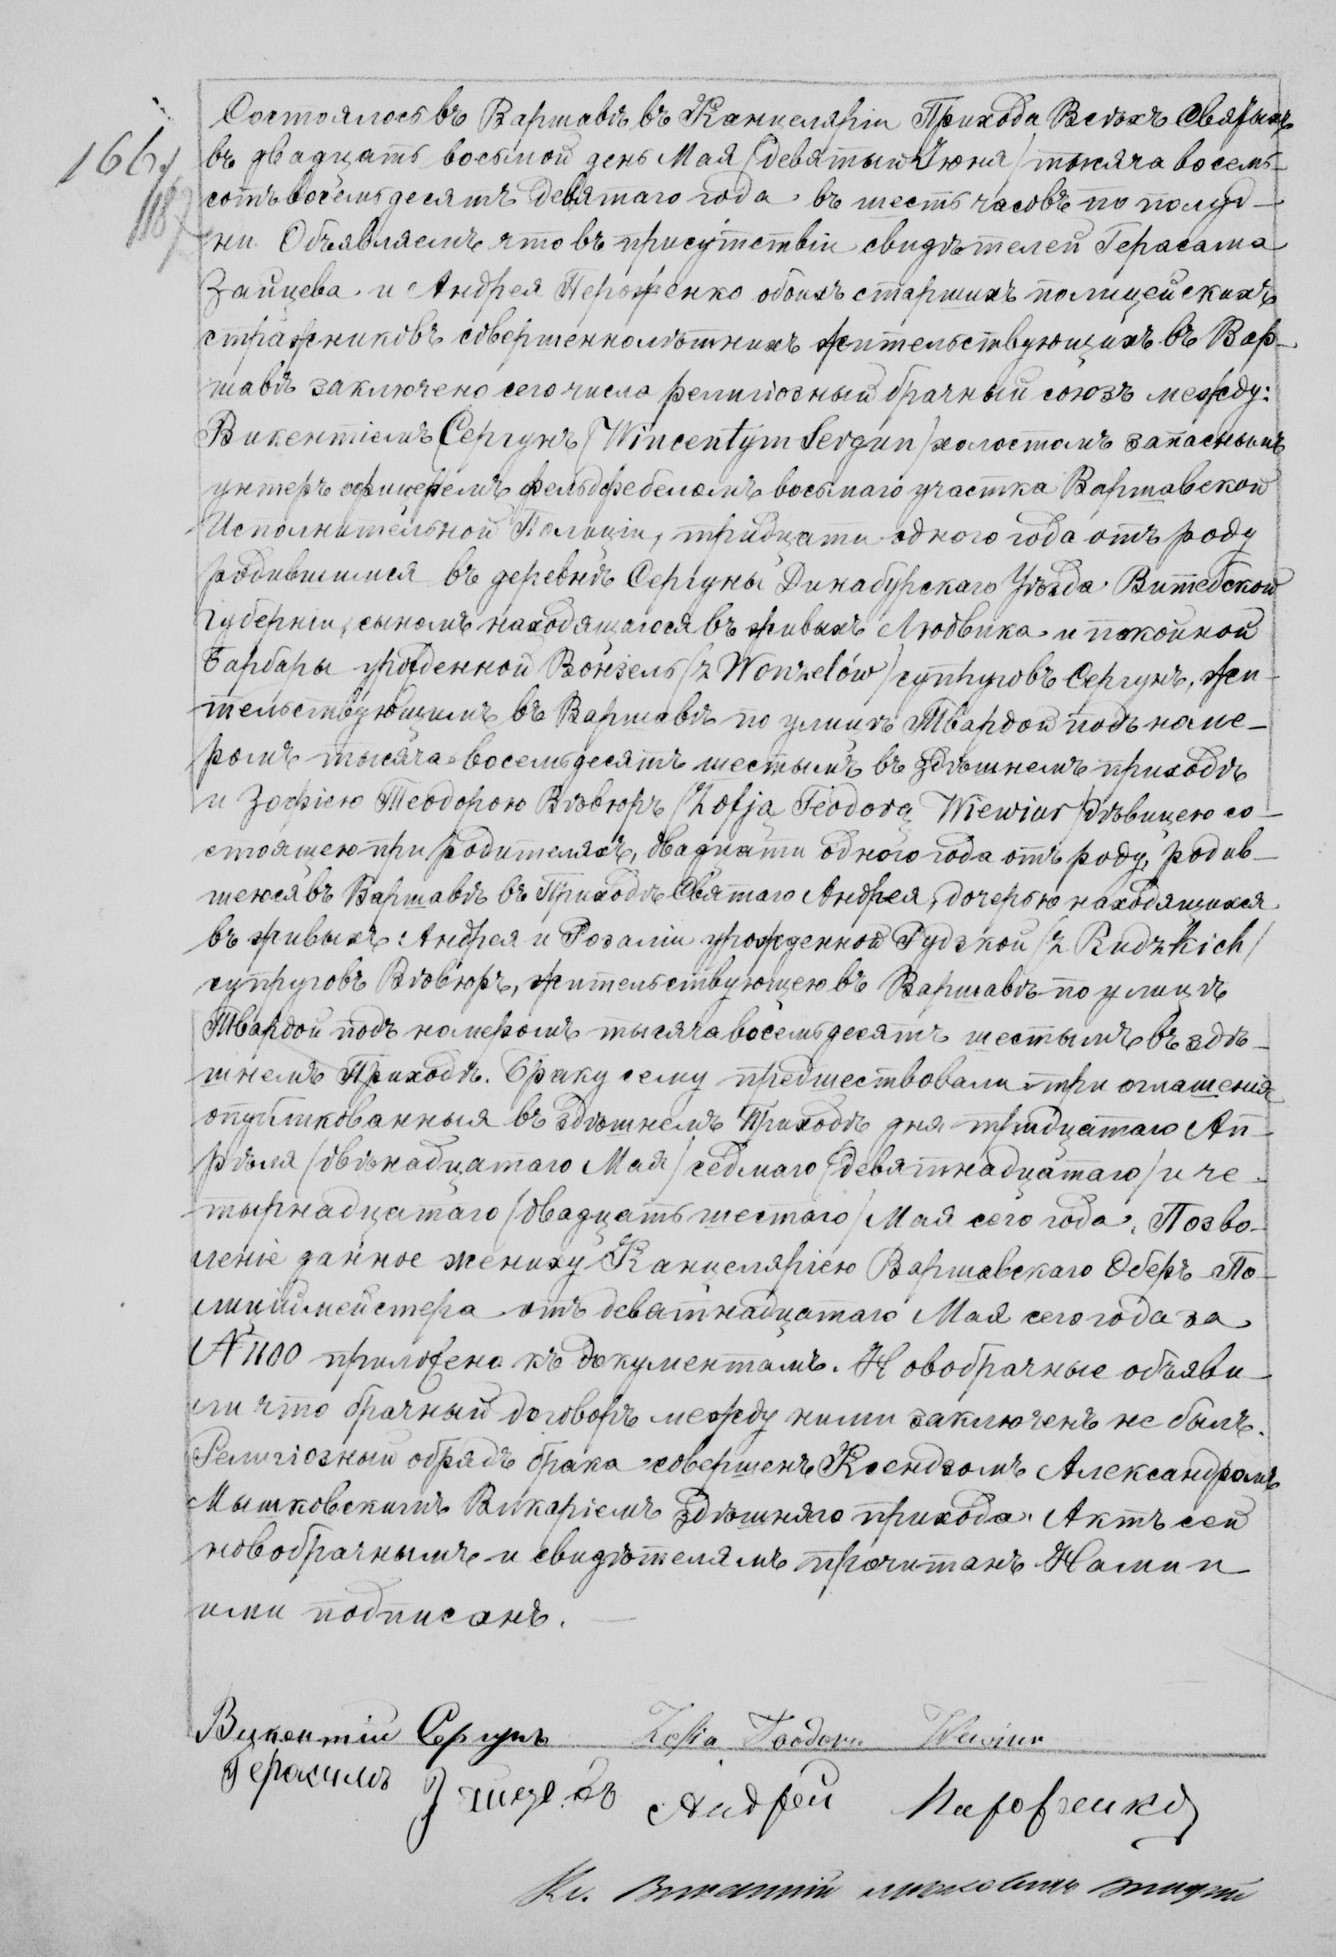 166
1187
Состоялось въ Варшавѣ въ Канцеляріи Прихода Всѣхъ Святыхъ
въ двадцать восьмой день Мая /девятый Іюня/ тысяча восемь-
сотъ восемьдесятъ девятаго года въ шесть часовъ по полуд-
ни. Объявляемъ что въ присутствіи свидѣтелей Герасима
Зайцева и Андрея Пероженко обоихъ старшихъ полицейскихъ
стражниковъ совершеннолѣтнихъ жительствующихъ въ Вар-
шавѣ заключено сего числа религіозный брачный союзъ между:
Викентіемъ Сергунъ /Wincentym Sergun/ холостомъ запаснымъ
унтеръ офицеремъ фельдфебелемъ восьмаго участка Варшавской
Исполнительной Полиціи, тридцати одного года отъ роду
родившимся въ деревнѣ Сергуны Динабурскаго Уѣзда Витебской
Губерніи, сыномъ находящагося въ живыхъ Людвика и покойной
Барбары урожденной Вонзель /z Wonzelów/ супруговъ Сергунъ, жи-
тельствующимъ въ Варшавѣ по улицѣ Твардой подъ номе-
ромъ тысяча восемьдесятъ шестымъ въ здѣшнемъ приходѣ
и Зофіею Теодорою Вѣвюръ /Zofją Teodorą Wiewiur/ дѣвицею со-
стоящею при родителяхъ, двадцати одного года отъ роду, родив-
шеюся въ Варшавѣ въ Приходѣ Святаго Андрея, дочерью находящихся
въ живыхъ: Андрея и Розаліи урожденной Рудзкой /z Rudzkich/
супруговъ Вѣвюръ, жительствующею въ Варшавѣ по улицѣ
Твардой подъ номеромъ тысяча восемьдесятъ шестымъ въ здѣ-
шнемъ Приходѣ. Браку сему предшествовали три оглашенія
опубликованныя въ здѣшнемъ Приходѣ дня тридцатаго Ап-
рѣля /двѣнадцатаго Мая/ седмаго /девятнадцатаго/ и че-
тырнадцатаго /двадцать шестаго/ Мая сего года. Позво-
леніе данное жениху Канцеляріею Варшавскаго Оберъ-По-
лиціймейстера отъ девятнадцатаго Мая сего года за
№ 1100 приложено къ документамъ. Новобрачные объяви-
ли что брачный договоръ между ними заключенъ не былъ.
Религіозный обрядъ брака совершенъ Ксендзомъ Александромъ
Мышковскимъ Викаріемъ здѣшняго прихода. Актъ сей
новобрачнымъ и свидѣтелямъ прочитанъ Нами и
ими подписанъ.
Викентій Сергунъ Zofia Teodora Wiewiur
Герасимъ Зайцевъ Андрей Пароженко
Кс.